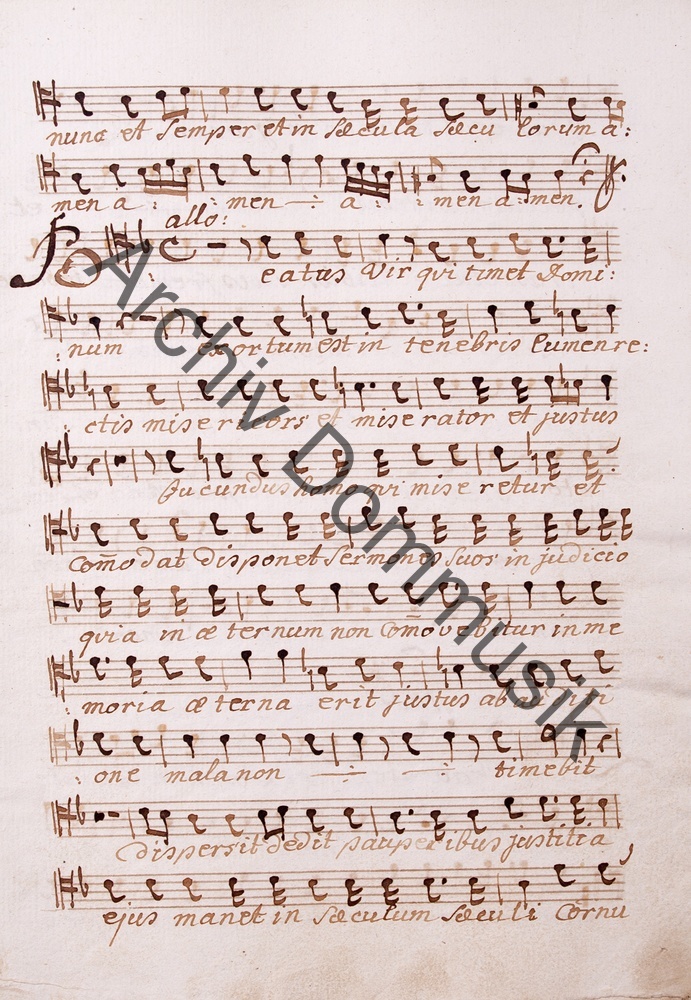 nunc et semper et in sæcula sæcu lorum a:
men a : : men —:— a : : men a: men.
allo:
B : eatus Vir qui timet Domi:
: num exortum est in tenebris lumen re:
: ctis mise ricors et mise rator et justus
Jucundus homo qui mise retur et
Com̃o dat disponet sermones suos in judicio
quia in æ ternum non Com̃ovebitur in me
: moria æ terna erit justus ab auditi
: one mala non —:— —:— timebit
Dispersit dedit pauperibus justitia
ejus manet in sæculum sæculi Cornu
Archiv Dommusik